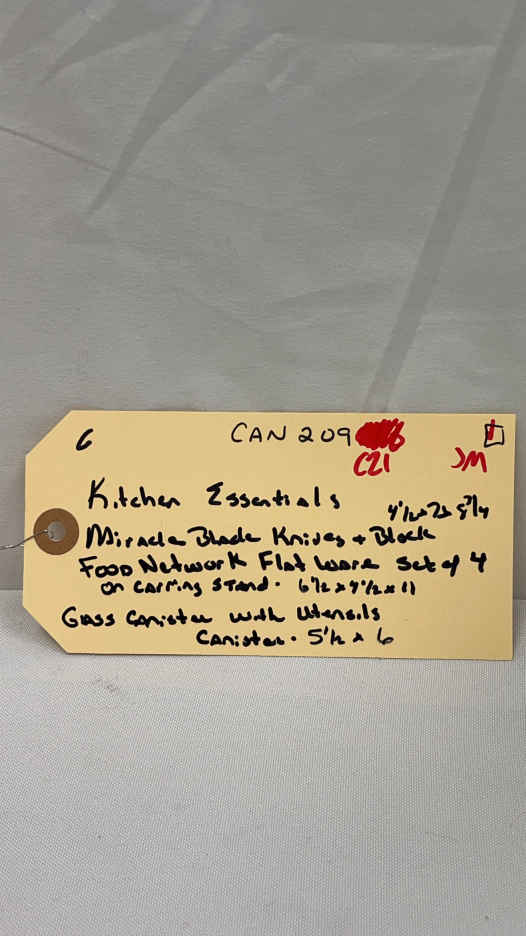 6
CAN 209
C21
JM
Kitchen Essentials
Miracle Blade Knives + Block
Food Network Flat Ware Set of 4
on Carring Stand. 6 1/2 x 9 1/2 x 11
Glass Canister with Utensils
Canister. 5 1/2 x 6